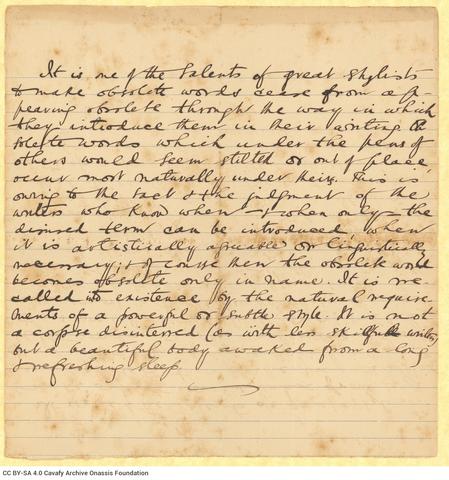 It is one of the talents of great stylists
to make obsolete words cease from ap-
pearing obsolete through the way in which
they introduce them in their writing. Ob-
solete words which under the pens of
others would seem stilted or out of place
occur most naturally under theirs. This is
owing to the tact & the judgment of the
writers who know when — & when only — the
disused term can be introduced, when
it is artistically agreeable or linguistically
necessary; & of course then the obsolete word
becomes obsolete only in name. It is re-
called into existence by the natural require-
ments of a powerful or subtle style. It is not
a corpse disinterred (as with less skilful writers)
but a beautiful body awaked from a long
& refreshing sleep.
CC BY-SA 4.0 Cavafy Archive Onassis Foundation